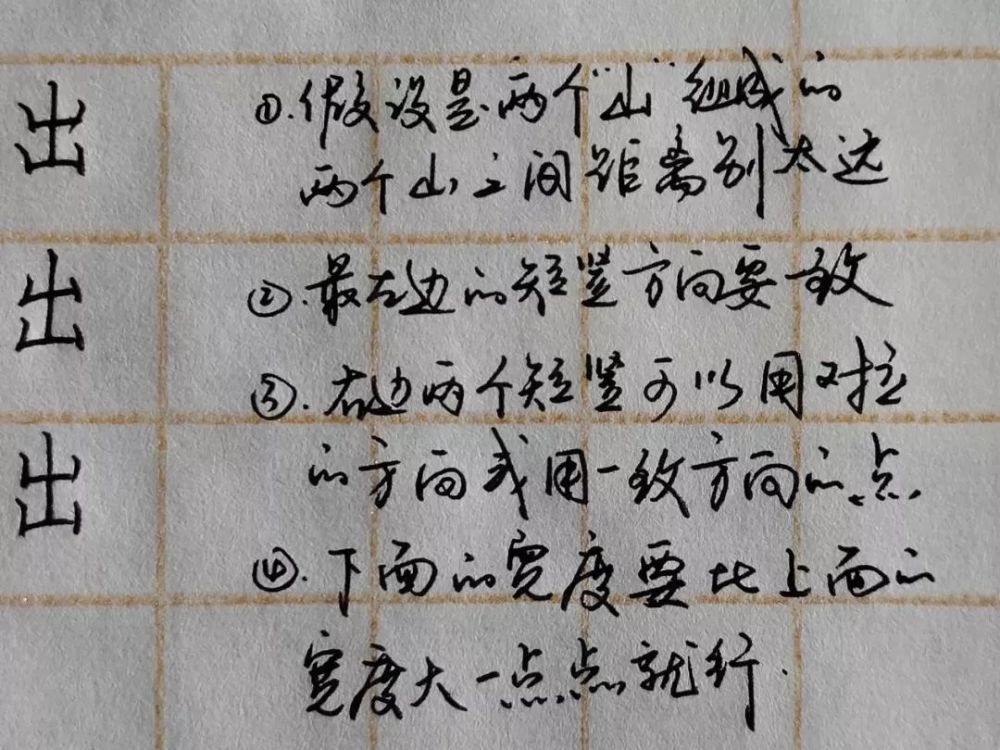 出
①.假设是两个"山"组成的
两个山之间距离别太远
出
②.最左边的短竖方向要一致
③.右边两个短竖可以用对拉
出
的方向或用一致方向的点.
④.下面的宽度要比上面的
宽度大一点点就行.